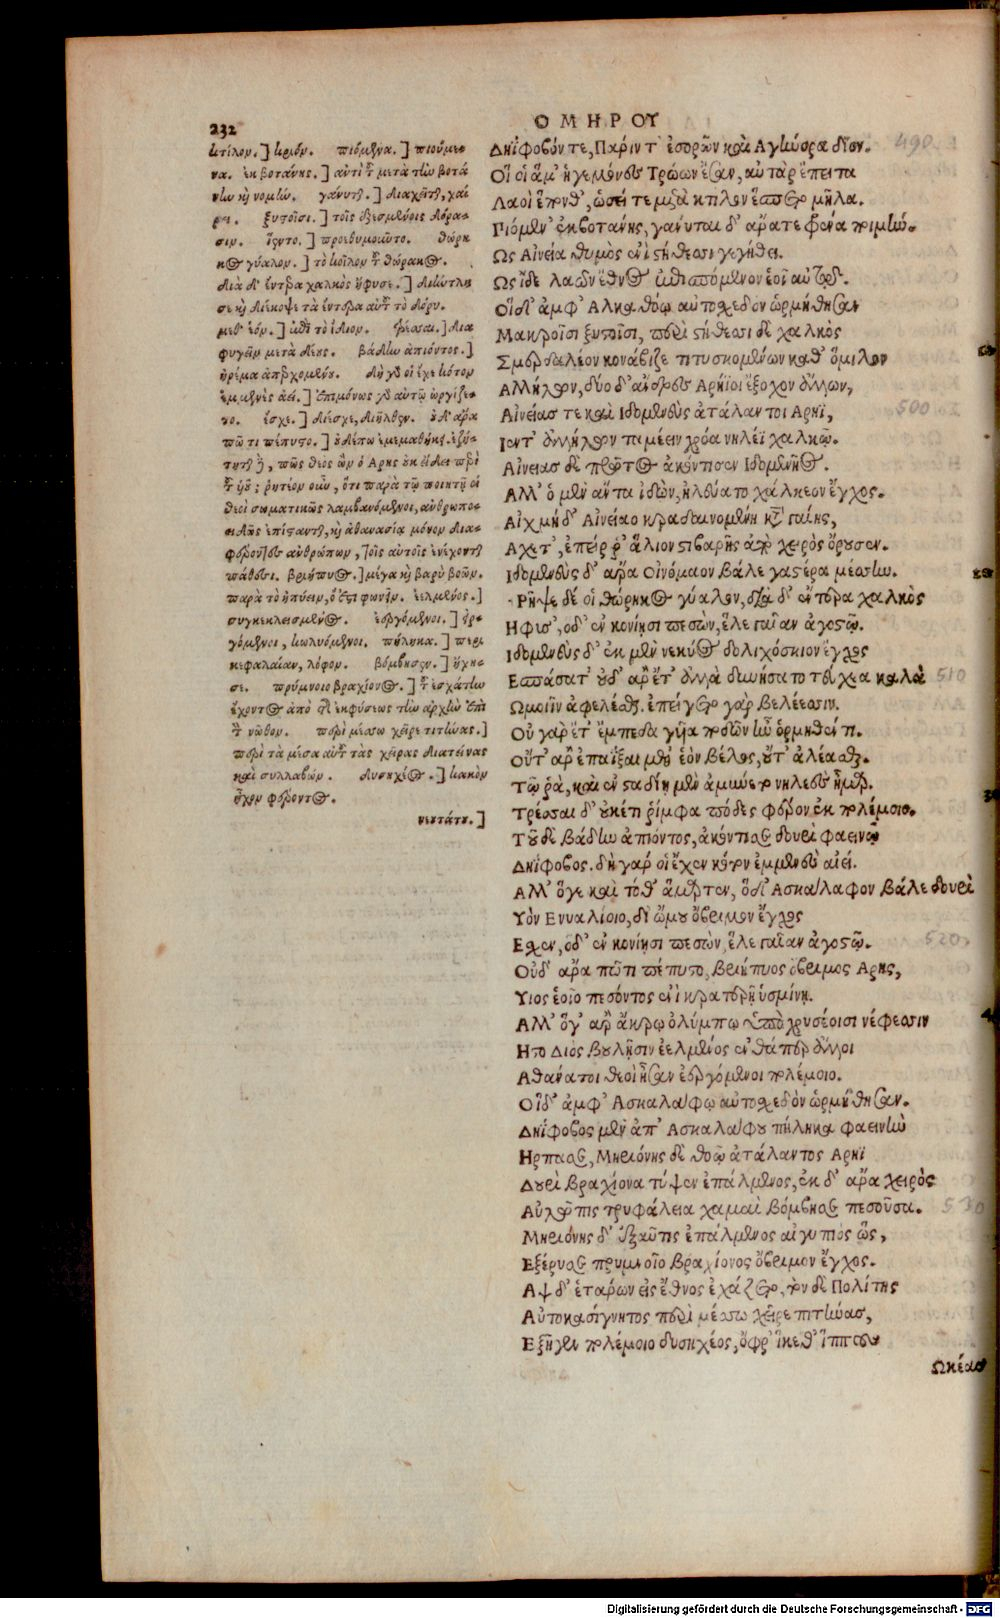 232
ΟΜΗΡΟΥ
κτίλον.] κριόν. πιόμενα.] πιούμε-
να. ἐκ βοτάνης.] ἀντὶ τοῦ μετὰ τὴν βοτά
νην καὶ νομήν. γάνυται.] διαχεῖται, χαί
ρει. ξυστοῖσι.] τοῖς ἐξεσμένοις δόρα-
σιν. ἵεντο.] προεθυμοῦντο. θώρη
κος γύαλον.] τὸ κοῖλον τοῦ θώρακος.
διὰ δ' ἔντερα χαλκὸς ἤφυσε.] διέντλη
σε καὶ διέκοψε τὰ ἔντερα αὐτοῦ τὸ δόρυ.
μεθ' ἑόν.] ἐπὶ τὸ ἴδιον. τρέσσαι.] δια
φυγεῖν μετὰ δέους. βάδην ἀπιόντος.]
ἠρέμα ἀπερχομένου. δὴ γάρ οἱ ἔχε κότον
ἐμμενὲς ἀεί.] ἐπιμόνως γὰρ αὐτῷ ὠργίζε-
το. ἔσχε.] διέσχε, διῆλθεν. οὐδ' ἄρα
πώ τι πέπυστο.] οὐδέπω ἐμεμαθήκει. ἐζή-
τηται δὲ, πῶς θεὸς ὢν ὁ Αρης οὐκ εἴδει περὶ
τοῦ υἱοῦ; ῥητέον οὖν, ὅτι παρὰ τῷ ποιητῇ οἱ
θεοὶ σωματικῶς λαμβανόμενοι, ἀνθρωπο-
ειδῶς ἐπίστανται, καὶ ἀθανασίᾳ μόνον δια-
φέροντες ἀνθρώπων, τοῖς αὐτοῖς ἐνέχονται
πάθεσι. βριήπυος.] μέγα καὶ βαρὺ βοῶν.
παρὰ τὸ ἠπύειν, ὅ ἐστι φωνεῖν. ἐελμένος.]
συγκεκλεισμένος. ἐεργόμενοι.] εἰρ-
γόμενοι, κωλυόμενοι. πήληκα.] περι
κεφαλαίαν, λόφον. βόμβησεν.] ἤχη-
σε. πρύμνοιο βραχίονος.] τοῦ ἐσχάτην
ἔχοντος ἀπὸ τῆς ἐκφύσεως τὴν ἀρχὴν ἐπὶ
τὸ νῶθον. περὶ μέσσῳ χεῖρε τιτήνας.]
περὶ τὰ μέσα αὐτοῦ τὰς χεῖρας διατείνας
καὶ συλλαβών. δυσηχέος.] κακὸν
ἦχον φέροντος.
νευτάτου.]
Δηίφοβόν τε, Πάριν τ' ἐσορῶν καὶ Αγήνορα δῖον.
Οἵ οἱ ἅμ' ἡγεμόνες Τρώων ἔσαν, αὐτὰρ ἔπειτα
Λαοὶ ἕπονθ', ὡσεί τε μετὰ κτίλον ἕσπετο μῆλα.
Πιόμεν' ἐκ βοτάνης, γάνυται δ' ἄρα τε φρένα ποιμήν.
Ως Αἰνείᾳ θυμὸς ἐνὶ στήθεσσι γεγήθει.
Ως ἴδε λαῶν ἔθνος ἐπισπόμενον ἑοῖ αὐτῷ.
Οἳ δ' ἀμφ' Αλκαθόῳ αὐτοσχεδὸν ὡρμήθησαν
Μακροῖσι ξυστοῖσι, περὶ στήθεσσι δὲ χαλκὸς
Σμερδαλέον κονάβιζε τιτυσκομένων καθ' ὅμιλον
Αλλήλων, δύο δ' ἄνδρες Αρήϊοι ἔξοχον ἄλλων,
Αἰνείας τε καὶ Ιδομενεὺς ἀτάλαντοι Αρηϊ,
Ιεντ' ἀλλήλων ταμέειν χρόα νηλέϊ χαλκῷ.
Αἰνείας δὲ πρῶτος ἀκόντισεν Ιδομενῆος.
Αλλ' ὁ μὲν ἄντα ἰδὼν, ἠλεύατο χάλκεον ἔγχος.
Αἰχμὴ δ' Αἰνείαο κραδαινομένη κατὰ γαίης,
Ωχετ', ἐπεί ῥ' ἅλιον στιβαρῆς ἀπὸ χειρὸς ὄρουσεν.
Ιδομενεὺς δ' ἄρα Οἰνόμαον βάλε γαστέρα μέσσην.
Ρῆξε δέ οἱ θώρηκος γύαλον, διὰ δ' ἔντερα χαλκὸς
Ηφυσ', ὁ δ' ἐν κονίῃσι πεσὼν, ἕλε γαῖαν ἀγοστῷ.
Ιδομενεὺς δ' ἐκ μὲν νεκύος δολιχόσκιον ἔγχος
Εσπάσατ' οὐδ' ἄρ' ἔτ' ἄλλα δυνήσατο τεύχεα καλὰ
Ωμοιῖν ἀφελέσθαι. ἐπείγετο γὰρ βελέεσσιν.
Οὐ γὰρ ἔτ' ἔμπεδα γυῖα ποδῶν ἦν ὁρμηθέντι.
Οὔτ' ἄρ' ἐπαΐξαι μεθ' ἑὸν βέλος, οὔτ' ἀλέασθαι.
Τῷ ῥα, καὶ ἐν σταδίῃ μὲν ἀμύνετο νηλεὲς ἦμαρ.
Τρέσσαι δ' οὐκέτι ῥίμφα πόδες φέρον ἐκ πολέμοιο.
Τοῦ δὲ βάδην ἀπιόντος, ἀκόντισε δουρὶ φαεινῷ
Δηΐφοβος. δὴ γάρ οἱ ἔχεν κότον ἐμμενὲς αἰεί.
Αλλ' ὅγε καὶ τόθ' ἅμαρτεν, ὃ δ' Ασκάλαφον βάλε δουρὶ
Υἱὸν Ενυαλίοιο, δι' ὤμου ὄβριμον ἔγχος
Εσχεν, ὁ δ' ἐν κονίῃσι πεσὼν, ἕλε γαῖαν ἀγοστῷ.
Οὐδ' ἄρα πώ τι πέπυστο, βριήπυος ὄβριμος Αρης,
Υἷος ἑοῖο πεσόντος ἐνὶ κρατερῇ ὑσμίνῃ.
Αλλ' ὅγ' ἄρ' ἄκρῳ ὀλύμπῳ ὑπὸ χρυσέοισι νέφεσσιν
Ηστο Διὸς βουλῇσιν ἐελμένος ἔνθά περ ἄλλοι
Αθάνατοι θεοὶ ἦσαν ἐεργόμενοι πολέμοιο.
Οἳ δ' ἀμφ' Ασκαλάφῳ αὐτοσχεδὸν ὡρμήθησαν.
Δηΐφοβος μὲν ἀπ' Ασκαλάφου πήληκα φαεινὴν
Ηρπασε, Μηριόνης δὲ θοῷ ἀτάλαντος Αρηϊ
Δουρὶ βραχίονα τύψεν ἐπάλμενος, ἐκ δ' ἄρα χειρὸς
Αὐλῶπις τρυφάλεια χαμαὶ βόμβησε πεσοῦσα.
Μηριόνης δ' ἐξαῦτις ἐπάλμενος αἰγυπιὸς ὣς,
Εξέρυσε πρυμνοῖο βραχίονος ὄβριμον ἔγχος.
Αψ δ' ἑτάρων εἰς ἔθνος ἐχάζετο, τὸν δὲ Πολίτης
Αὐτοκασίγνητος περὶ μέσσῳ χεῖρε τιτήνας,
Εξῆγεν πολέμοιο δυσηχέος, ὄφρ' ἵκεθ' ἵππους
Ωκέας
490.
500
510
520.
530
Digitalisierung gefördert durch die Deutsche Forschungsgemeinschaft - DFG